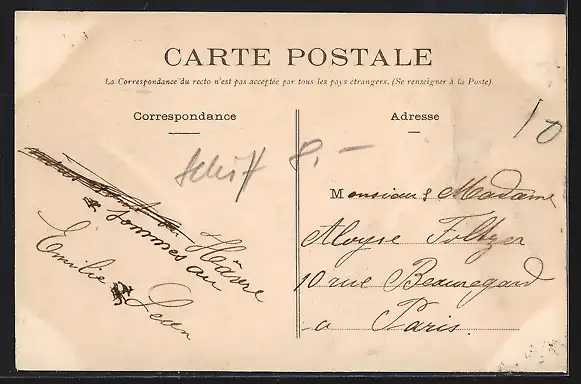 CARTE POSTALE
La Correspondance du recto n'est pas acceptée par tous les pays étrangers. (Se renseigner à la Poste).
Correspondance
Adresse
10
Schiff 8.-
sommes au Hâvre
Emilie & Leon
Monsieur & Madame
Aloyse
10 rue Beauregard
a Paris.